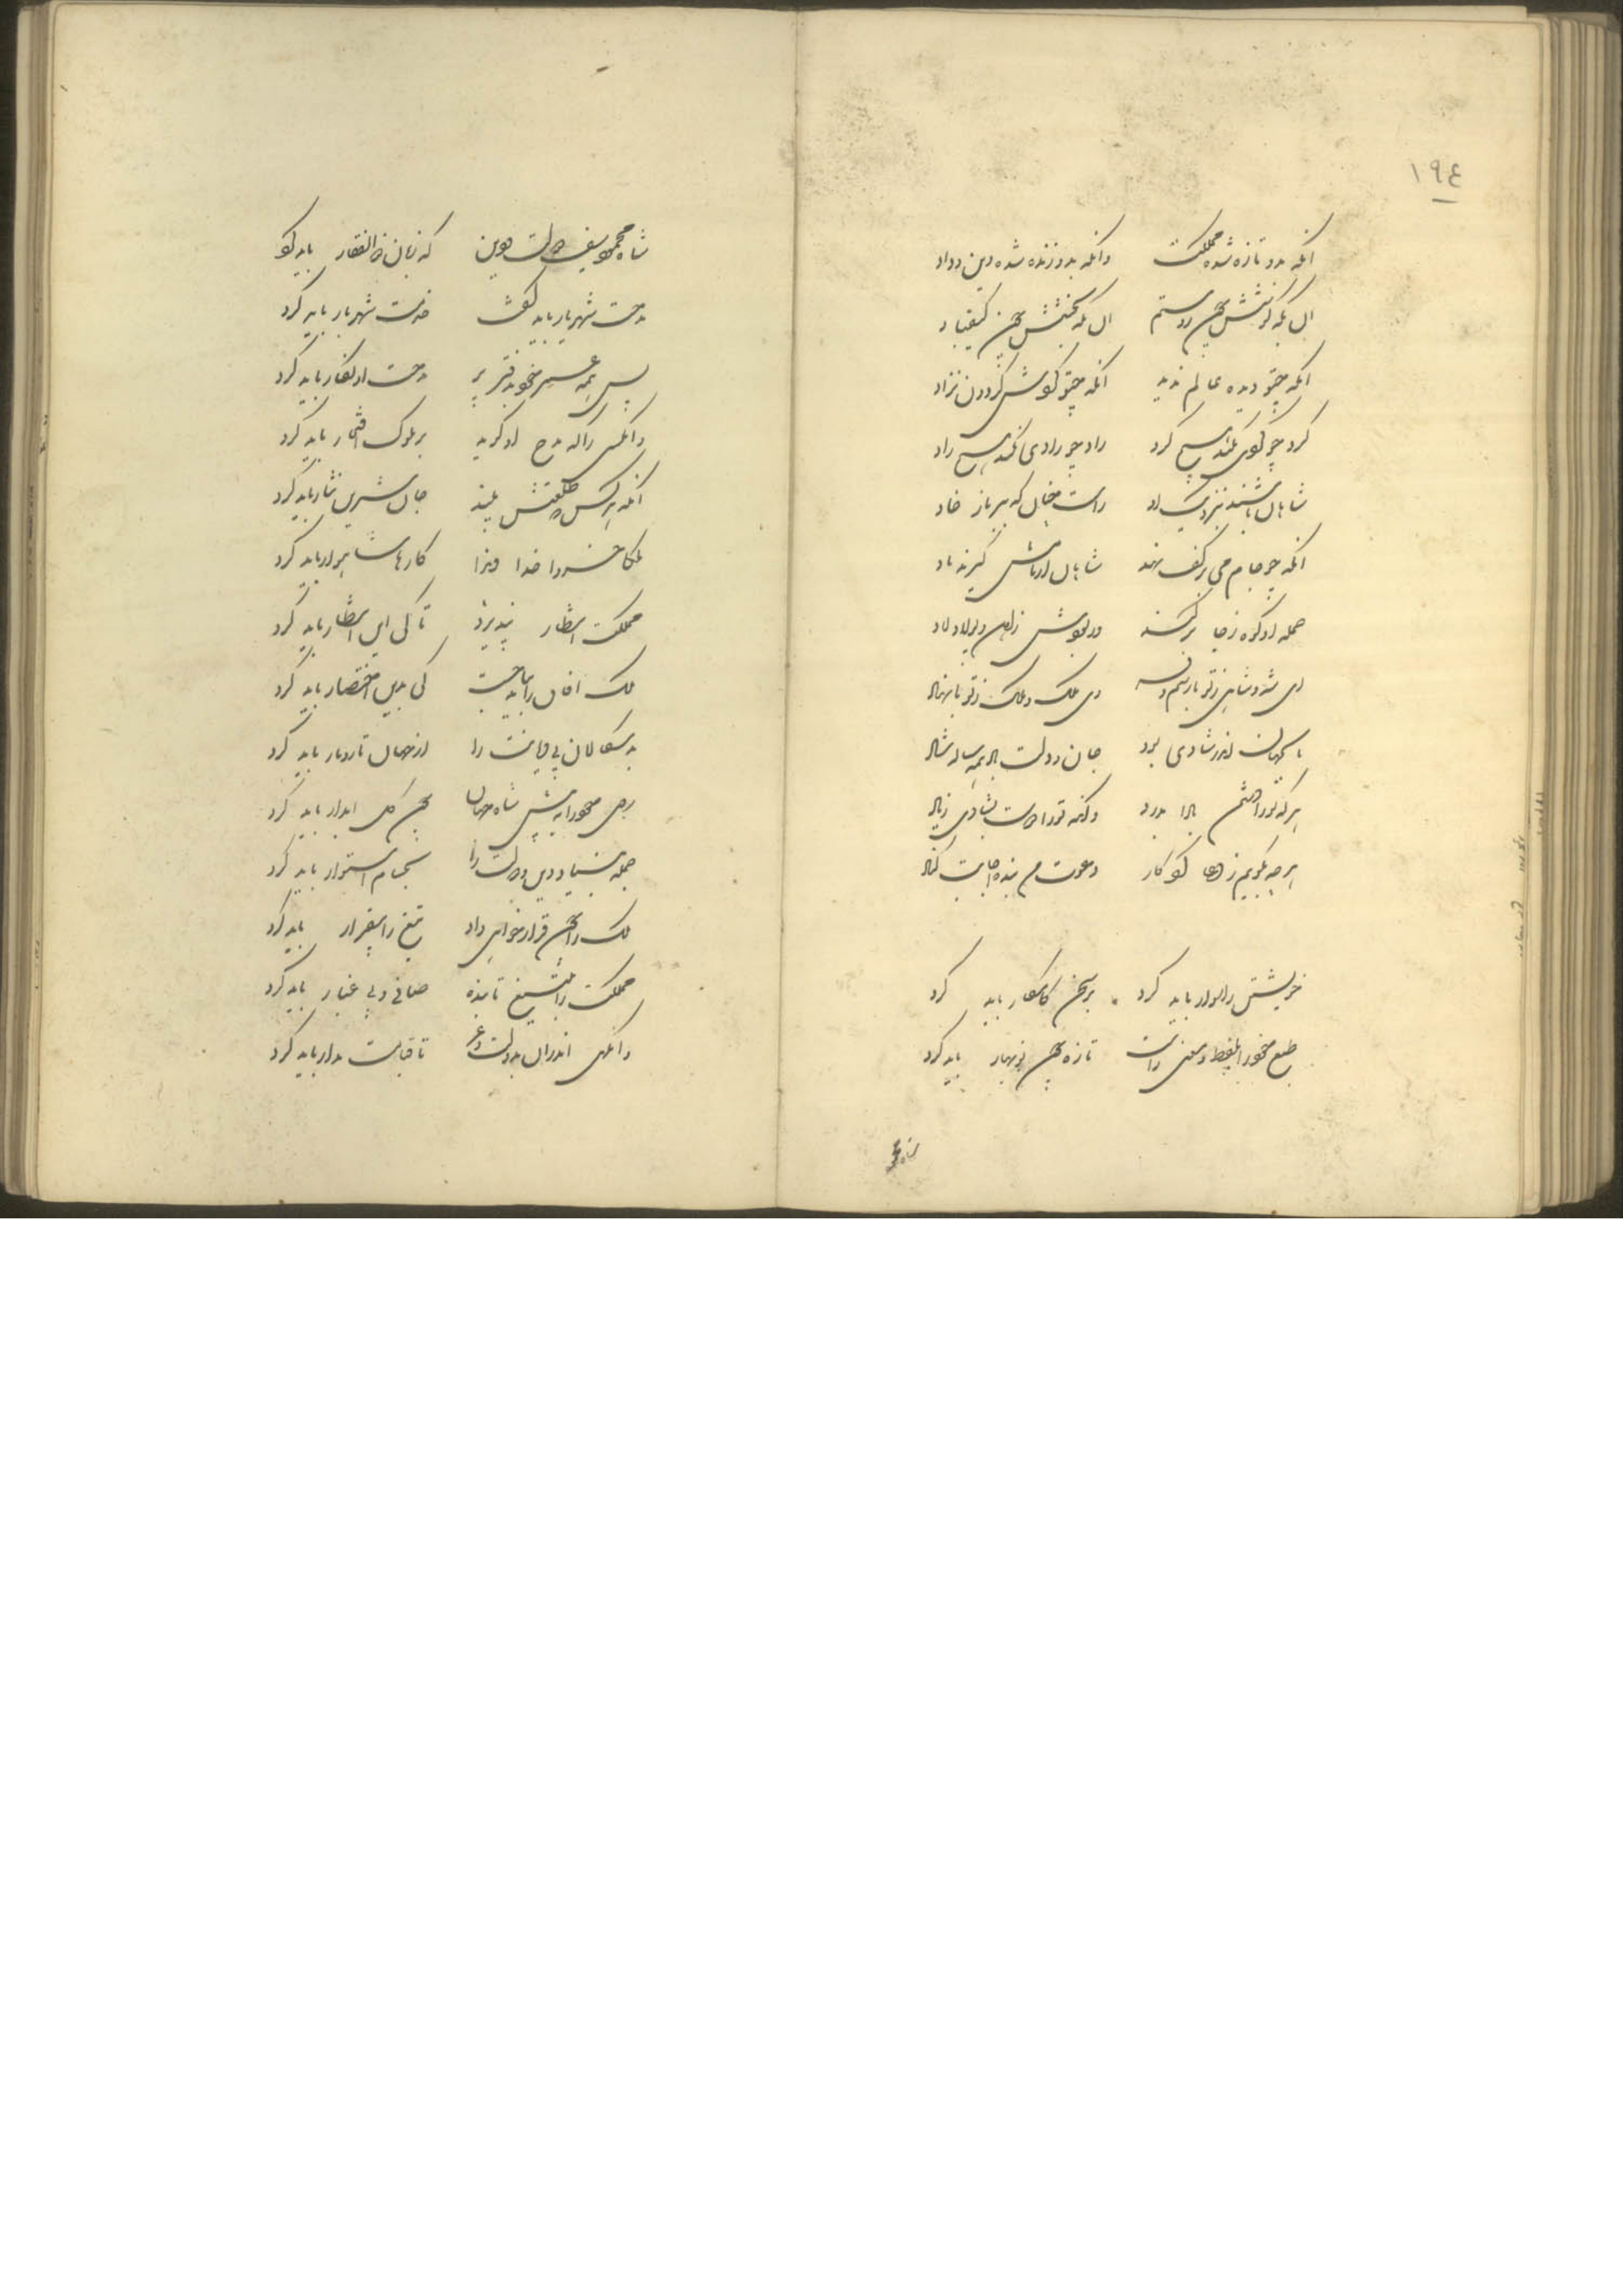 ١٩٤
آنکه بدو تازه شده مملکت وانکه بدو زنده شده دین و داد
آن که کوشش چون روستم آن که بخشش چون کیقباد
آنکه چنو دیده عالم ندید آنکه چنو گوش گردون نزاد
گرد چو گوی نکند هیچ گرد راد چو رادی نکند هیچ راد
شاهان باشند بنزدیک او راست چنان که بر باز خاد
آنکه چو جام می بر کف نهد شاهان از نامش گیرند یاد
حمله او کوه ز جا برکند ور بودش ز آهن و پولاد لاد
ای شه و شاهی ز تو با رسم و وی ملک و ملک ز تو با نهاد
تا بجهان اندر شادی بود جان و دولت همه ساله شاد
هر که تو را دشمن بادا بدرد وانکه تو را دوست بشادی زیاد
هر چه بگویم ز دعا کردگار دعوت من بنده اجابت کناد
خویشتن را سوار باید کرد بر سخن کامکار باید کرد
طبع خود را بلفظ و معنی راست تازه چون نوبهار باید کرد
شاه محمود سیف دولت و دین که زبان ذوالفقار باید کرد
مدحت شهریار باید گفت خدمت شهریار باید کرد
پس همه عمر خود دفتر بر مدحت او نگار باید کرد
وانکسی را که مدح او گوید بر ملوک افتخار باید کرد
آنکه هر کس که طلعتش بیند جان شیرین نثار باید کرد
ملکا خسروا خداوندا کارها شاهوار باید کرد
مملکت انتظار نپذیرد تا کی این انتظار باید کرد
ملک آفاق را بباید جست کی بدین اختصار باید کرد
بدسگالان بی دیانت را از جهان تار و مار باید کرد
روی خود را به پیش شاه جهان چون گل آبدار باید کرد
جمله بنیاد دین و دولت را بحسام استوار باید کرد
ملک را چون قرار خواهی داد تیغ را بیقرار باید کرد
مملکت را بتیغ تابنده صافی و بی غبار باید کرد
وانگهی اندران بدولت و عز تا قیامت مدار باید کرد